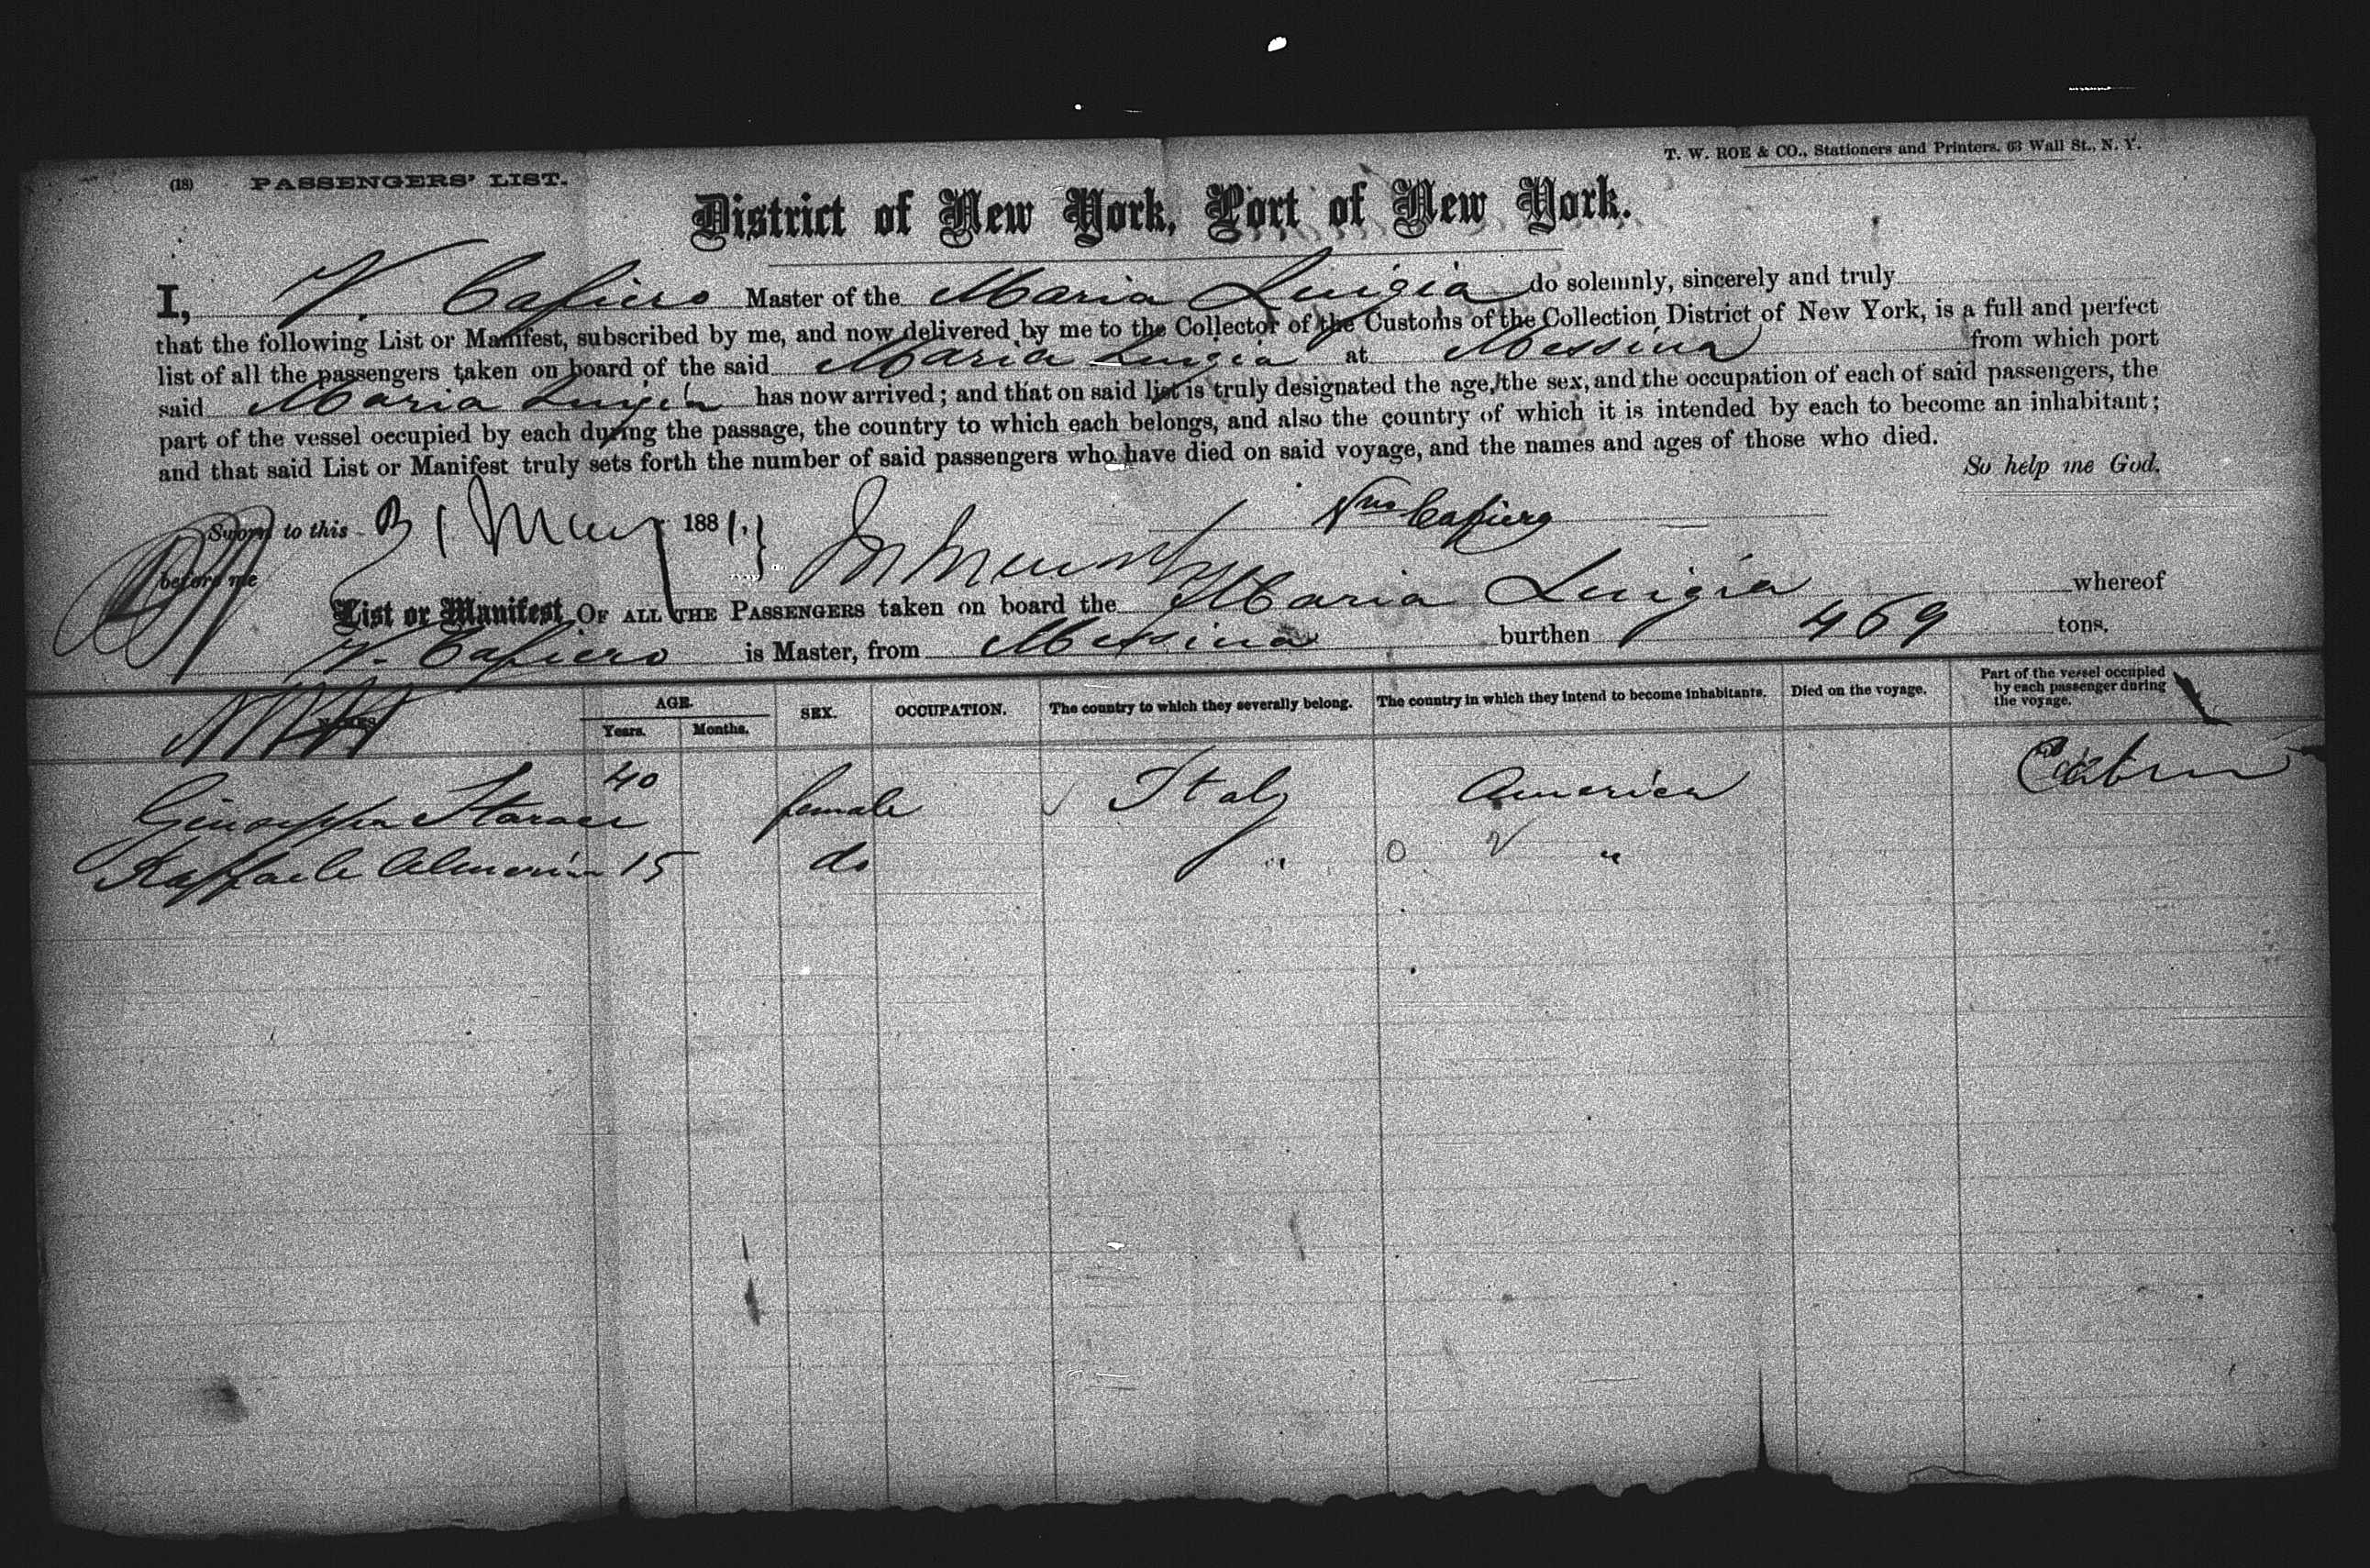 (18) PASSENGERS' LIST. T. W. ROE & CO., Stationers and Printers, 63 Wall St., N. Y.
District of New York, Port of New York.
I, V. Cafiero Master of the Maria Luigia do solemnly, sincerely and truly
that the following List or Manifest, subscribed by me, and now delivered by me to the Collector of the Customs of the Collection District of New York, is a full and perfect
list of all the passengers taken on board of the said Maria Luigia at Messina from which port
said Maria Luigia has now arrived; and that on said list is truly designated the age, the sex, and the occupation of each of said passengers, the
part of the vessel occupied by each during the passage, the country to which each belongs, and also the country of which it is intended by each to become an inhabitant;
and that said List or Manifest truly sets forth the number of said passengers who have died on said voyage, and the names and ages of those who died.
So help me God.
Sworn to this 31 May 1881. Cafiero
before me
List or Manifest OF ALL THE PASSENGERS taken on board the Maria Luigia whereof
V. Cafiero is Master, from Messina burthen 469 tons.
NAMES AGE. Years. Months. SEX. OCCUPATION. The country to which they severally belong. The country in which they intend to become inhabitants. Died on the voyage. Part of the vessel occupied by each passenger during the voyage.
Giuseppa Starace 40 female Italy America Cabin
Raffaele 15 do " "